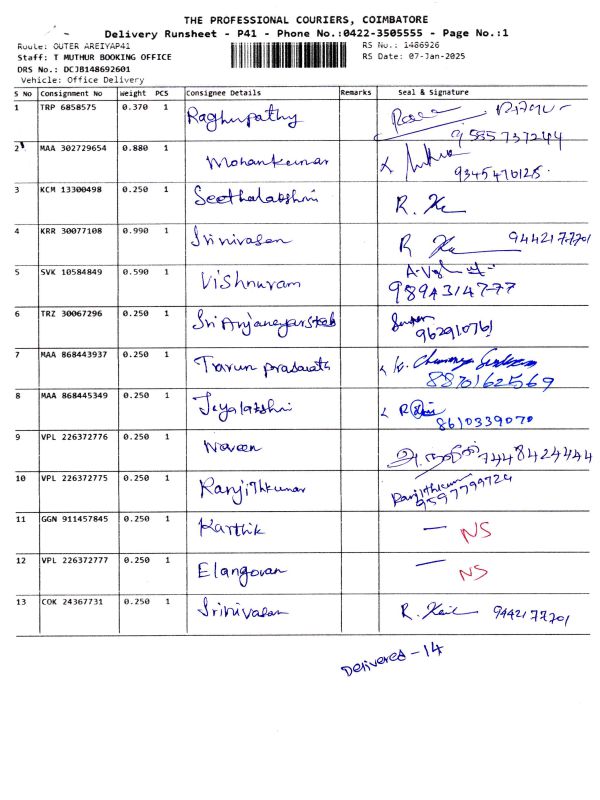 THE PROFESSIONAL COURIERS, COIMBATORE
Delivery Runsheet - P41 - Phone No.:0422-3505555 - Page No.:1
Route: OUTER AREIYAP41 RS No.: 1486926
Staff: T MUTHUR BOOKING OFFICE RS Date: 07-Jan-2025
DRS No.: DCJB148692601
Vehicle: Office Delivery
S No Consignment No Weight PCS Consignee Details Remarks Seal & Signature
1 TRP 6858575 0.370 1 Raghupathy
9585737244
2 MAA 302729654 0.880 1 Mohankumar
9345470128
3 KCM 13300498 0.250 1 Seethalakshmi R.
4 KRR 30077108 0.990 1 Srinivasan R 9442177701
5 SVK 10584849 0.590 1 Vishnuram
9894314777
6 TRZ 30067296 0.250 1 Sri
962910761
7 MAA 868443937 0.250 1 Tarun
8870162569
8 MAA 868445349 0.250 1 R
8610339070
9 VPL 226372776 0.250 1 Naveen 7448424444
10 VPL 226372775 0.250 1 Ranjithkumar Ranjithkumar
9597799724
11 GGN 911457845 0.250 1 Karthik — NS
12 VPL 226372777 0.250 1 Elangovan — NS
13 COK 24367731 0.250 1 Srinivasan R. 9442177701
Delivered - 14